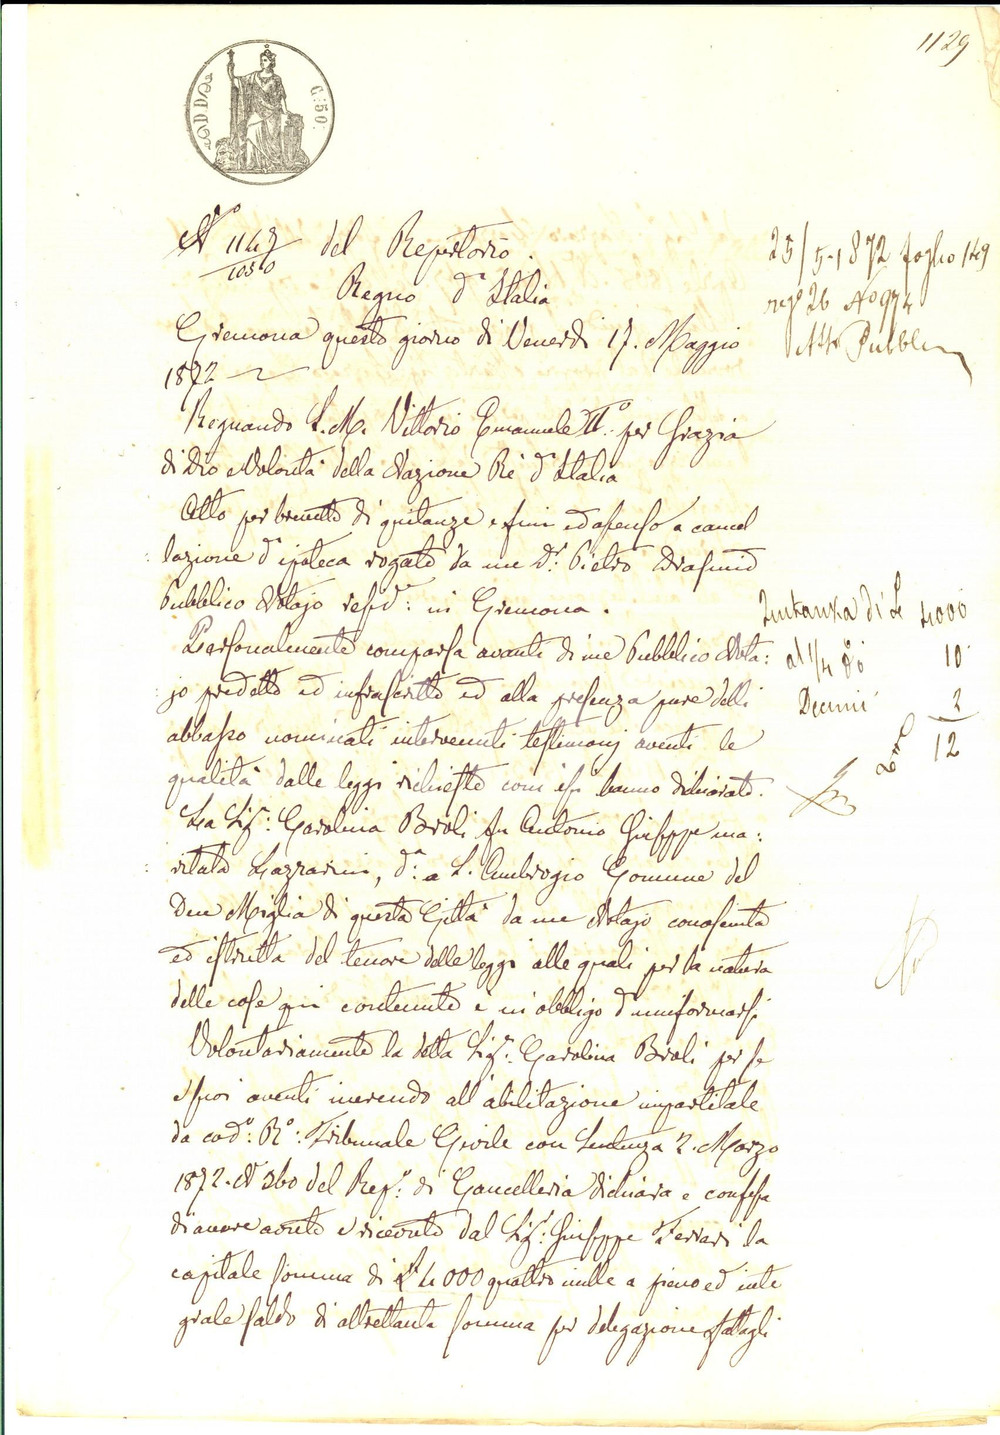 1129
C: 50:
N° 1147/1050 del Repertorio.
Regno d'Italia
Cremona questo giorno di Venerdi 17. Maggio
1872
Regnando S. M. Vittorio Emanuele II°. per Grazia
di Dio e Volontà della Nazione Re d'Italia
Atto per brevetto di quitanza e fini ed assenso a cancel
lazione d'ipoteca rogato da me Dr. Pietro
Pubblico Notajo resid: in Cremona.
Personalmente comparsa avanti di me Pubblico Nota:
jo predetto ed infrascritto ed alla presenza pure delli
abbasso nominati intervenuti testimonj aventi le
qualità dalle leggi richieste com'essi hanno dichiarato.
La Sig.ra Carolina Brioli fu Antonio Giuseppe ma:
ritata Lazzarini, d.a a S. Ambrogio Comune del
Due Miglia di questa Città da me Notajo conosciuta
ed istrutta del tenore delle leggi alle quali per la natura
delle cose qui contenute è in obbligo d'uniformarsi
Volontariamente la detta Sig.ra Carolina Brioli per se
e suoi aventi inerendo all'abilitazione impartitale
da cod°: R°: Tribunale Civile con Sentenza 2. Marzo
1872. N 360 del Rep°: di Cancelleria dichiara e confessa
di avere avuto e ricevuto dal Sig.r Giuseppe Ferrari la
capitale somma di L. 4000 quattro mille a pieno ed inte
grale saldo di altrettanta somma per delegazione fattagli
25/5-1872 foglio 149
reg° 26 N° 974
Atti Pubbl
Quitanza di L 4000
al 1/4 % 10
Decimi 2
12